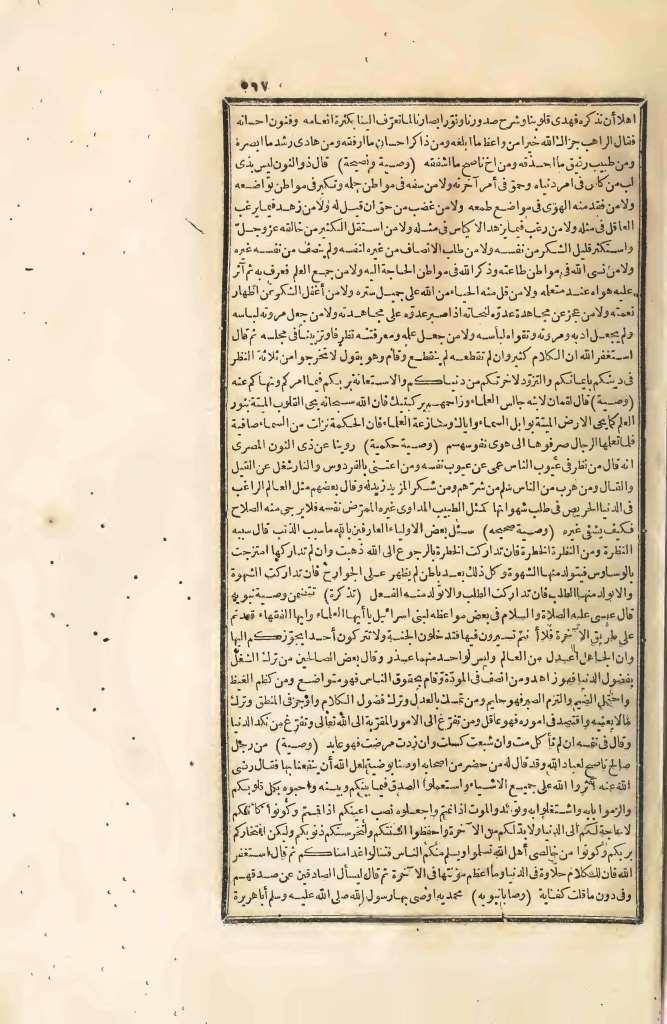 ٥٦٧
اهلا أن نذكره فهدى قلوبنا وشرح صدورنا ونور ابصارنا لما تعرّف الينا بكثرة انعامه وفنون احسانه
فقال الراهب جزاك الله خيرا من واعظ ما ابلغه ومن ذاكر احسان ما ارفقه ومن هادى رشد ما ابصره
ومن طبيب رفيق ما احذقه ومن اخ ناصح ما اشفقه (وصية ونصيحة) قال ذو النون ليس بذى
لب من كاس فى امر دنياه وحمق فى أمر آخرته ولا من سفه فى مواطن حلمه وتكبر فى مواطن تواضعه
ولا من فقد منه الهوى فى مواضع طمعه ولا من غضب من حق ان قيل له ولا من زهد فيما يرغب
العاقل فى مثله ولا من رغب فيما يزهد الاكياس فى مثله ولا من استقل الكثير من خالقه عز وجل
واستكثر قليل الشكر من نفسه ولا من طلب الانصاف من غيره لنفسه ولم ينصف من نفسه غيره
ولا من نسى الله فى مواطن طاعته وذكر الله فى مواطن الحاجة اليه ولا من جمع العلم فعرف به ثم آثر
عليه هواه عند متعلمه ولا من قل منه الحياء من الله على جميل ستره ولا من أغفل الشكر عن اظهار
نعمته ولا من عجز عن مجاهدة عدوّه لنجاته اذا صبر عدوّه على مجاهدته ولا من جعل مروته لباسه
ولم يجعل ادبه ومروته وتقواه لباسه ولا من جعل علمه ومعرفته تظرفا وتزينا فى مجلسه ثم قال
استغفر الله ان الكلام كثير وان لم تقطعه لم ينقطع وقام وهو يقول لا تخرجوا من ثلاثة النظر
فى دينكم بايمانكم والتزوّد لآخرتكم من دنياكم والاستعانة بربكم فيما امركم ونهاكم عنه
(وصية) قال لقمان لابنه جالس العلماء وزاحمهم بركبتيك فان الله سبحانه يحيى القلوب الميتة بنور
العلم كما يحيى الارض الميتة بوابل السماء واياك ومنازعة العلماء فان الحكمة نزلت من السماء صافية
فلما تعلمها الرجال صرفوها الى هوى نفوسهم (وصية حكمية) روينا عن ذى النون المصرى
انه قال من نظر فى عيوب الناس عمى عن عيوب نفسه ومن اعتنى بالفردوس والنار شغل عن القيل
والقال ومن هرب من الناس سلم من شرّهم ومن شكر المزيد زيد له وقال بعضهم مثل العالم الراغب
فى الدنيا الحريص فى طلب شهواتها كمثل الطبيب المداوى غيره الممرّض نفسه فلا يرجى منه الصلاح
فكيف يشفى غيره (وصية صحيحه) سئل بعض الاولياء العارفين بالله ما سبب الذنب قال سببه
النظرة ومن النظرة الخطرة فان تداركت الخطرة بالرجوع الى الله ذهبت وان لم تداركها امتزجت
بالوساوس فيتولد منها الشهوة وكل ذلك بعد باطن لم يظهر على الجوارح فان تداركت الشهوة
والا تولد منها الطلب فان تداركت الطلب والا تولد منه الفعل (تذكرة) تتضمن وصية نبويه
قال عيسى عليه الصلاة والسلام فى بعض مواعظه لبنى اسرائيل يا أيها العلماء وايها الفقهاء قعدتم
على طريق الآخرة فلا أنتم تسيرون فيها فتدخلون الجنة ولا تتركون أحدا يجوزكم اليها
وان الجاهل أعذل من العالم وليس لواحد منهما عذر وقال بعض الصالحين من ترك الشغل
بفضول الدنيا فهو زاهد ومن انصف فى المودّة وقام بحقوق الناس فهو متواضع ومن كظم الغيظ
واحتمل الضيم والتزم الصبر فهو حليم ومن تمسك بالعدل وترك فضول الكلام واوجز فى المنطق وترك
ما لا يعنيه واقتصد فى اموره فهو عاقل ومن تفرّغ الى الامور المقربة الى الله تعالى وتفرّغ من نكد الدنيا
وقال فى نفسه ان لم تأكل مت وان شبعت كسلت وان زدت مرضت فهو عابد (وصية) من رجل
صالح ناصح لعباد الله وقد قال له من حضر من اصحابه اوصنا بوصية لعل الله أن ينفعنا بها فقال رضى
الله عنه آثروا الله على جميع الاشياء واستعملوا الصدق فيما بينكم وبينه واحبوه بكل قلوبكم
والزموا بابه واشتغلوا به وتوسدوا الموت اذا نمتم واجعلوه نصب اعينكم اذا قمتم وكونوا كأنكم
لا حاجة لكم الى الدنيا ولا بد لكم من الآخرة واحفظوا السنتكم ولتحزنكم ذنوبكم وليكن افتخاركم
بربكم وكونوا من خالصى أهل الله تسلموا ويسلم منكم الناس فتنالوا غدا مناكم ثم قال استغفر
الله فان للكلام حلاوة فى الدنيا وما اعظم مؤنتها فى الآخرة ثم قال ليسأل الصادقين عن صدقهم
وفى دون ما قلت كفاية (وصايا نبويه) محمديه اوصى بها رسول الله صلى الله عليه وسلم أبا هريرة